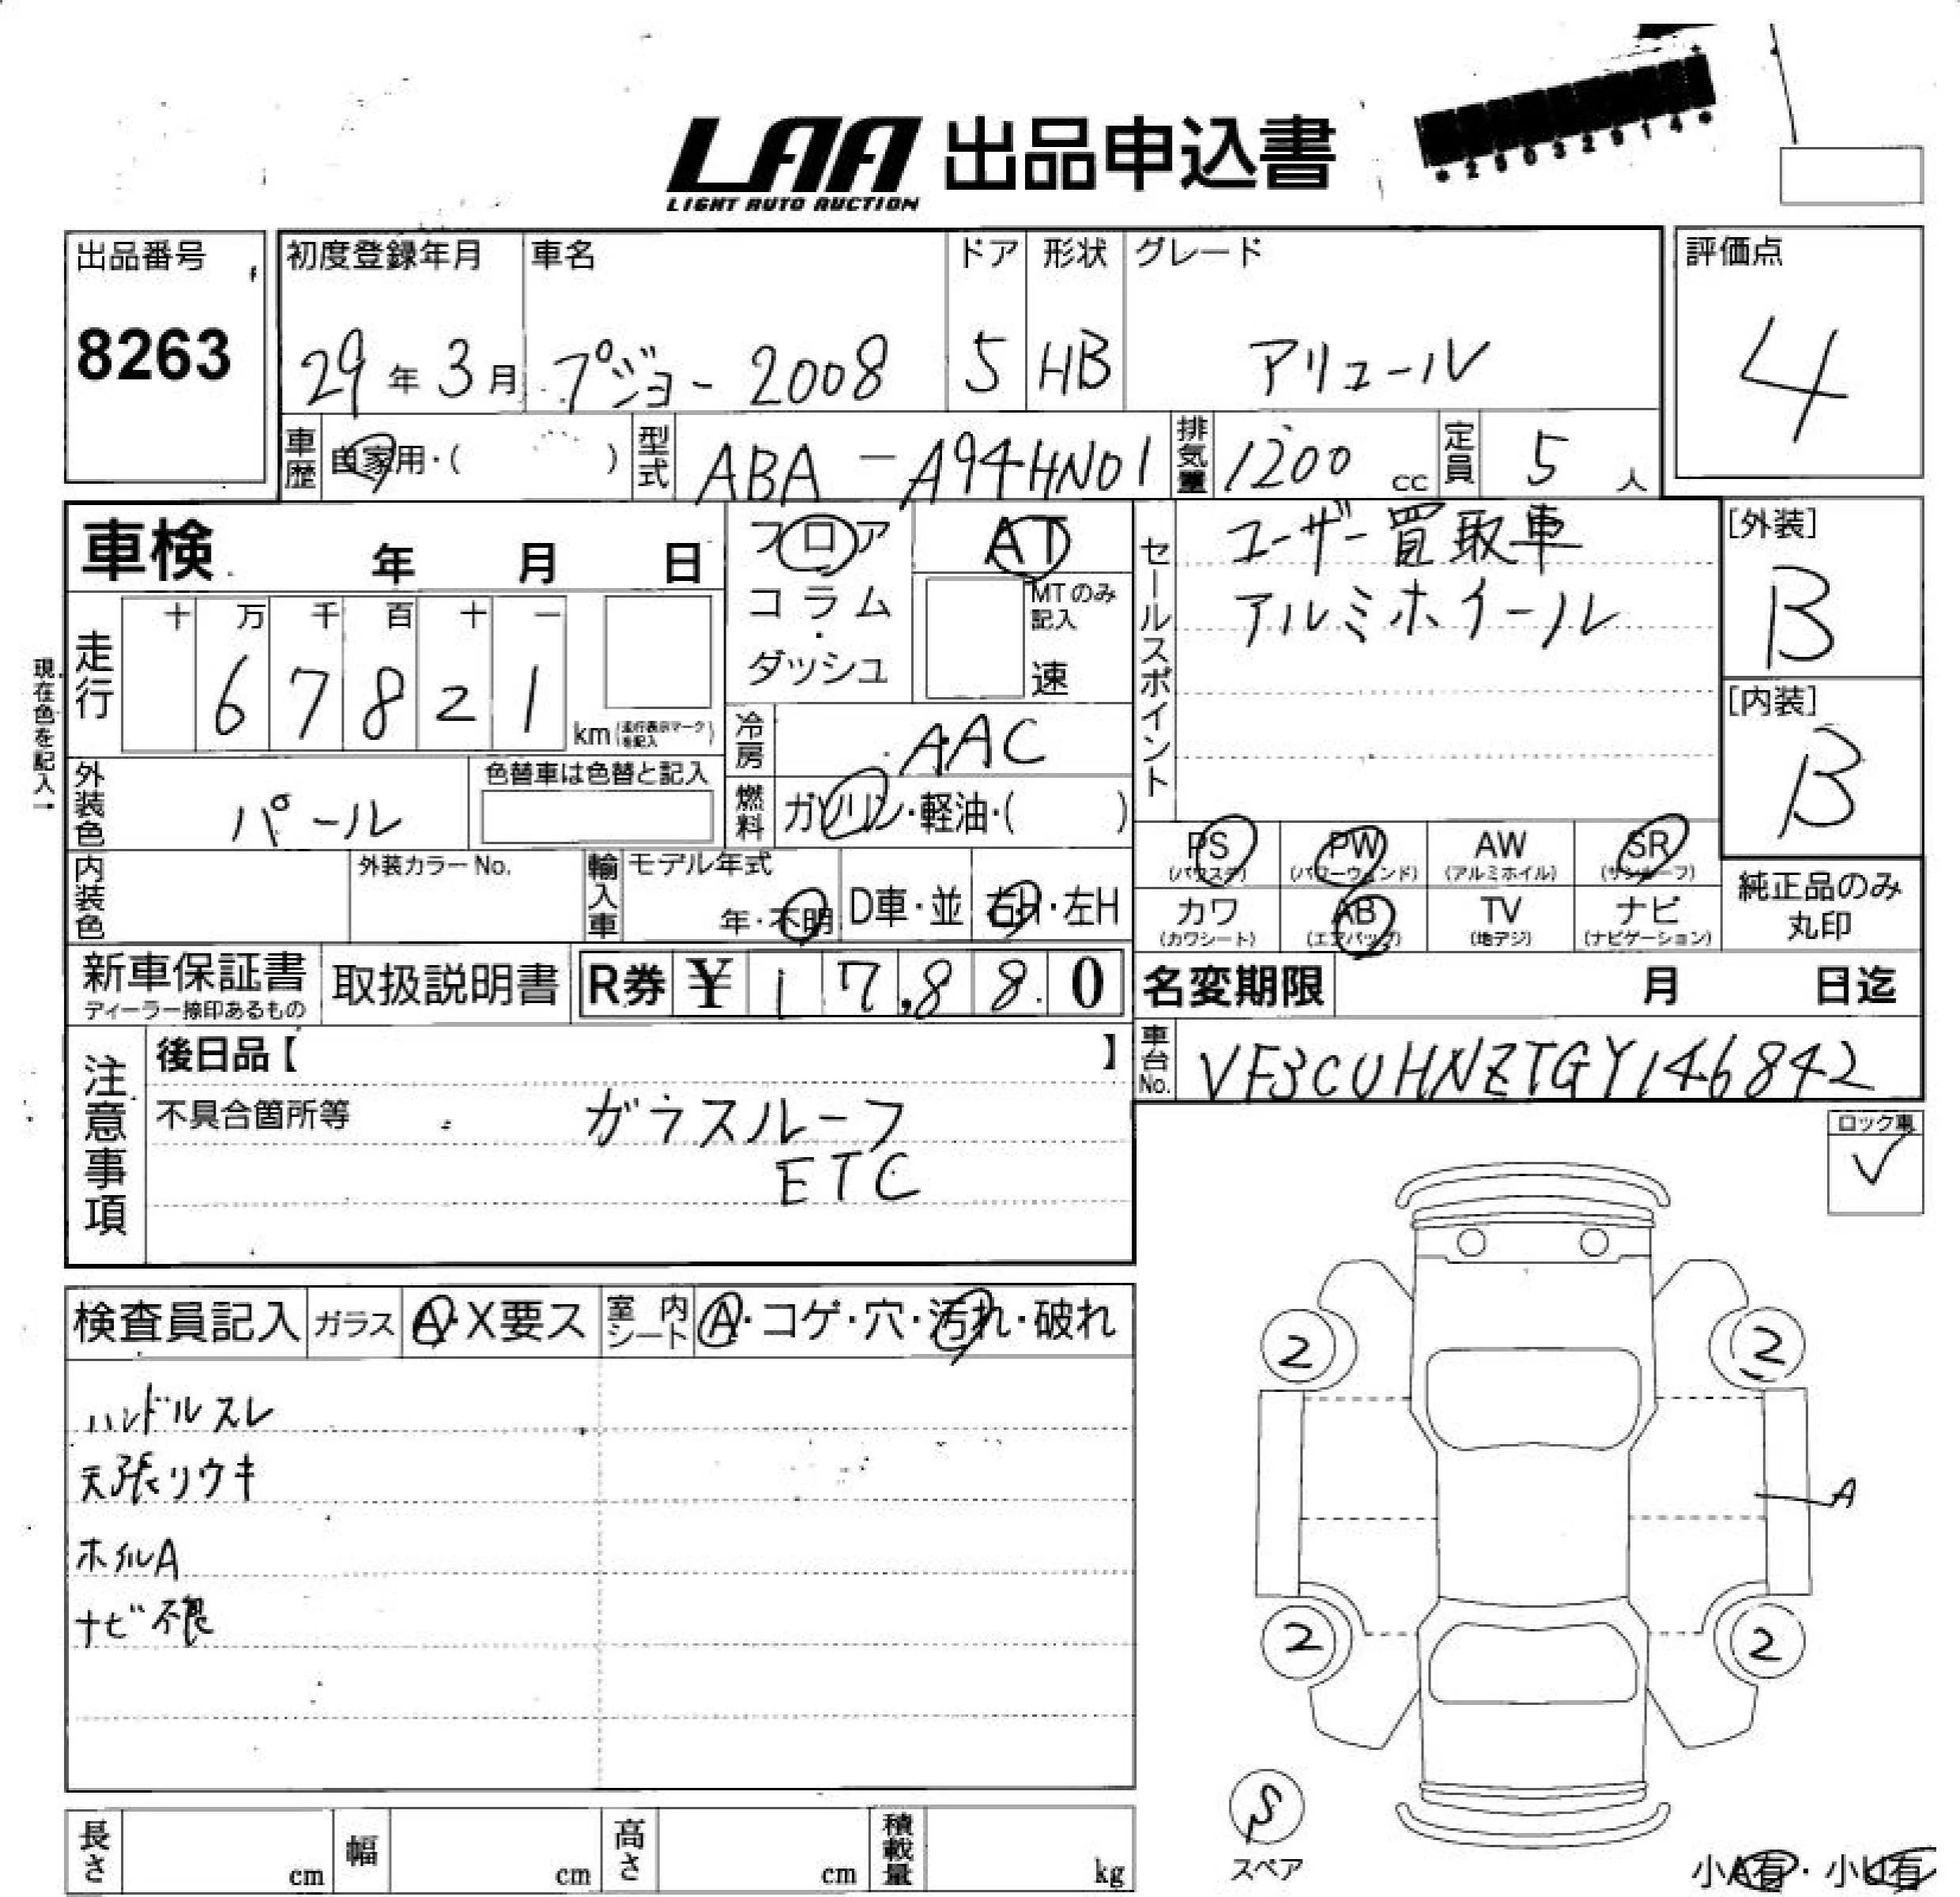 LAA 出品申込書
LIGHT AUTO AUCTION
*2503291４*
出品番号
8263
初度登録年月 車名 ドア 形状 グレード
29年3月 プジョー 2008 5 HB アリュール
評価点
4
車歴 自家用・( ) 型式 ABA-A94HN01 排気量 1200 cc 定員 5 人
車検 年 月 日
フロア AT
コラム・ダッシュ
MTのみ記入
速
セールスポイント
ユーザー買取車
アルミホイール
[外装]
B
[内装]
B
現在色を記入→
走行 十 万 千 百 十 一
6 7 8 2 1 km (走行表示マークを記入)
冷房 AAC
外装色 パール 色替車は色替と記入
燃料 ガソリン・軽油・( )
PS (パワステ) PW (パワーウィンド) AW (アルミホイル) SR (サンルーフ)
カワ (カワシート) AB (エアバッグ) TV (地デジ) ナビ (ナビゲーション)
純正品のみ丸印
内装色 外装カラーNo. 輸入車 モデル年式 年・不明 D車・並 右H・左H
新車保証書 ディーラー捺印あるもの
取扱説明書
R券 ¥ 1 7,8 8. 0
名変期限 月 日迄
車台No. VF3CUHNZTGY146842
注意事項
後日品【 】
不具合箇所等 ガラスルーフ
ETC
ロック車
✓
検査員記入 ガラス A・X要ス 室内シート A・コゲ・穴・汚れ・破れ
ハンドルスレ
天張リウキ
ホイルA
ナビ不良
2 2
A
2 2
S
スペア
小A有・小U有
長さ cm 幅 cm 高さ cm 積載量 kg